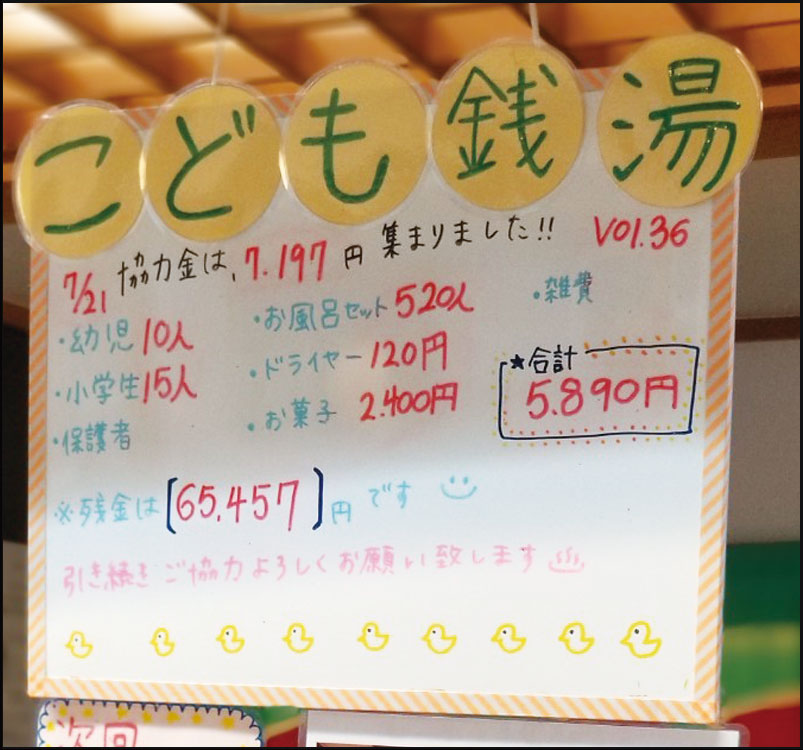 こども銭湯
7/21 協力金は、7.197円 集まりました!! VOl.36
・幼児 10人 ・お風呂セット 520人 ・雑費
・小学生 15人 ・ドライヤー 120円 ★合計
・保護者 ・お菓子 2.400円 5.890円
※残金は[65,457]円です
引き続きご協力よろしくお願い致します♨
次回